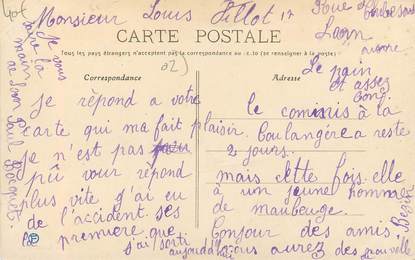 Monsieur Louis
Rue
Laon
Aisne
CARTE POSTALE
Tous les pays étrangers n'acceptent pas la correspondance au
Correspondance
Adresse
je vous
serre la
main
Paul
je répond a votre
carte qui ma fait plaisir.
je n'est pas
pû vour répond
plus vite j'ai eu
de l'accident ses
premiere que
j'ai sorti
aujourd'hui
Le pain
et assez
bon.
le commis à la
boulangère a reste
2 jours.
mais cette fois elle
à un jeune homme
de maubeuge.
Bonjour des amis
vous aurez des nouvelle